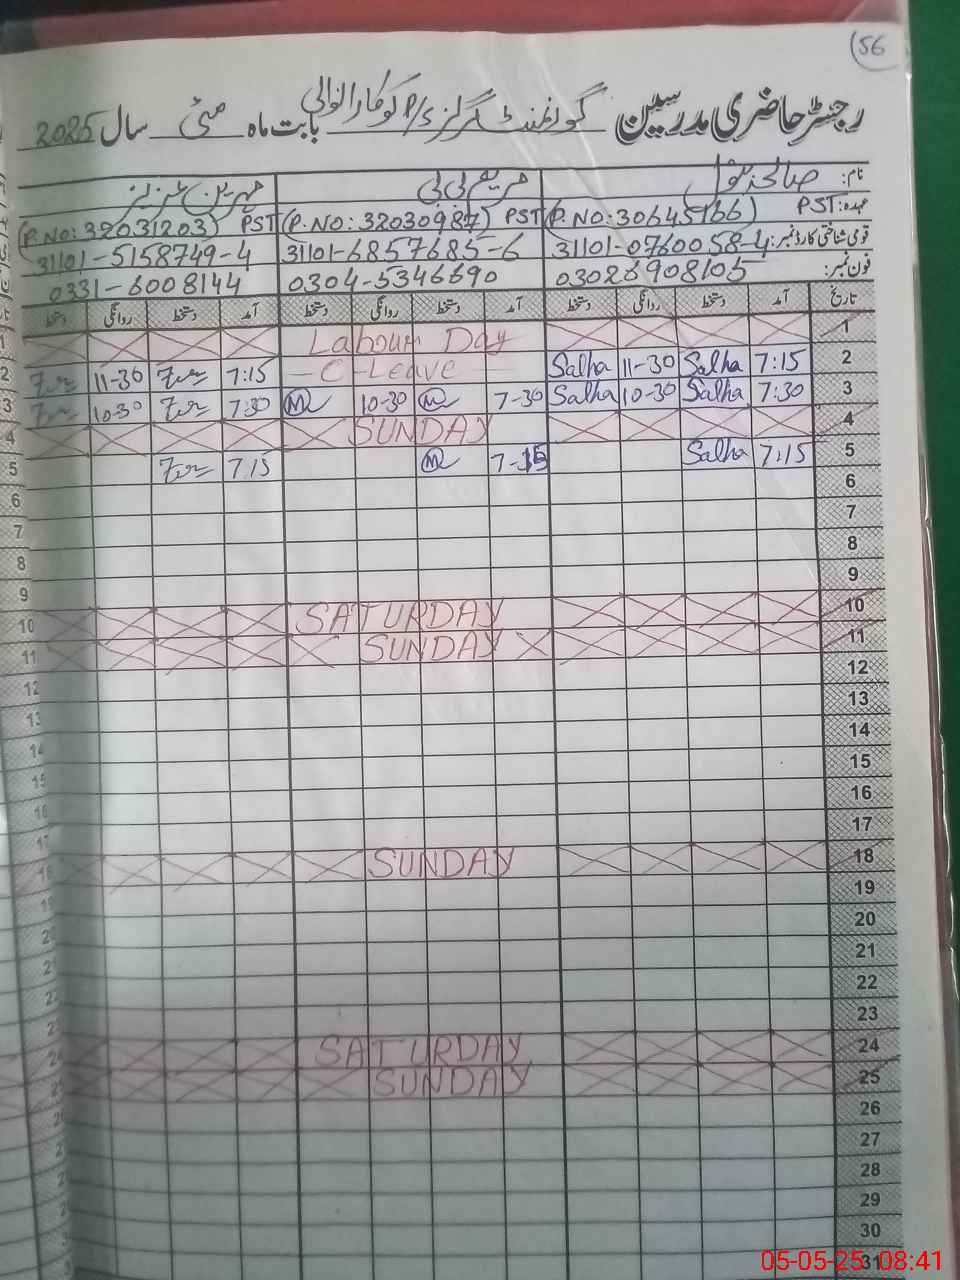 56
رجسٹر حاضری مدرسین گورنمنٹ گرلز P/S کوکارانوالی بابت ماہ مئی سال 2025
نام: صالحہ بتول مریم بی بی مہرین عزیز
عہدہ: PST (P.NO: 30645166) PST (P.NO: 32030987) PST (P.NO: 32031203)
قومی شناختی کارڈ نمبر: 31101-0760058-4 31101-6857685-6 31101-5158749-4
فون نمبر: 03026908105 0304-5346690 0331-6008144
تاریخ آمد دستخط روانگی دستخط آمد دستخط روانگی دستخط آمد دستخط روانگی دستخط
1 Labour Day 1
2 7:15 Salha 11-30 Salha C-Leave 7:15 11-30 2
3 7:30 Salha 10-30 Salha 7-30 10-30 7:30 10-30 3
4 SUNDAY 4
5 7:15 Salha 7-15 7:15 5
6 6
7 7
8 8
9 9
10 SATURDAY 10
11 SUNDAY 11
12 12
13 13
14 14
15 15
16 16
17 17
18 SUNDAY 18
19
20
21
22
23
24 SATURDAY
25 SUNDAY
26
27
28
29
30
31
05-05-25 08:41